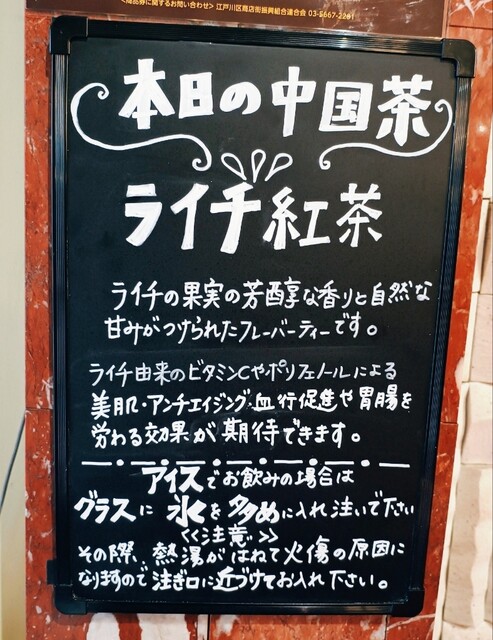 <商品券に関するお問い合わせ> 江戸川区商店街振興組合連合会 03-5667-2261
本日の中国茶
ライチ紅茶
ライチの果実の芳醇な香りと自然な
甘みがつけられたフレーバーティーです。
ライチ由来のビタミンCやポリフェノールによる
美肌・アンチエイジング、血行促進や胃腸を
労わる効果が期待できます。
アイスでお飲みの場合は
グラスに氷を多めに入れ注いで下さい
<<注意>>
その際、熱湯がはねて火傷の原因に
なりますので注ぎ口に近づけてお入れ下さい。